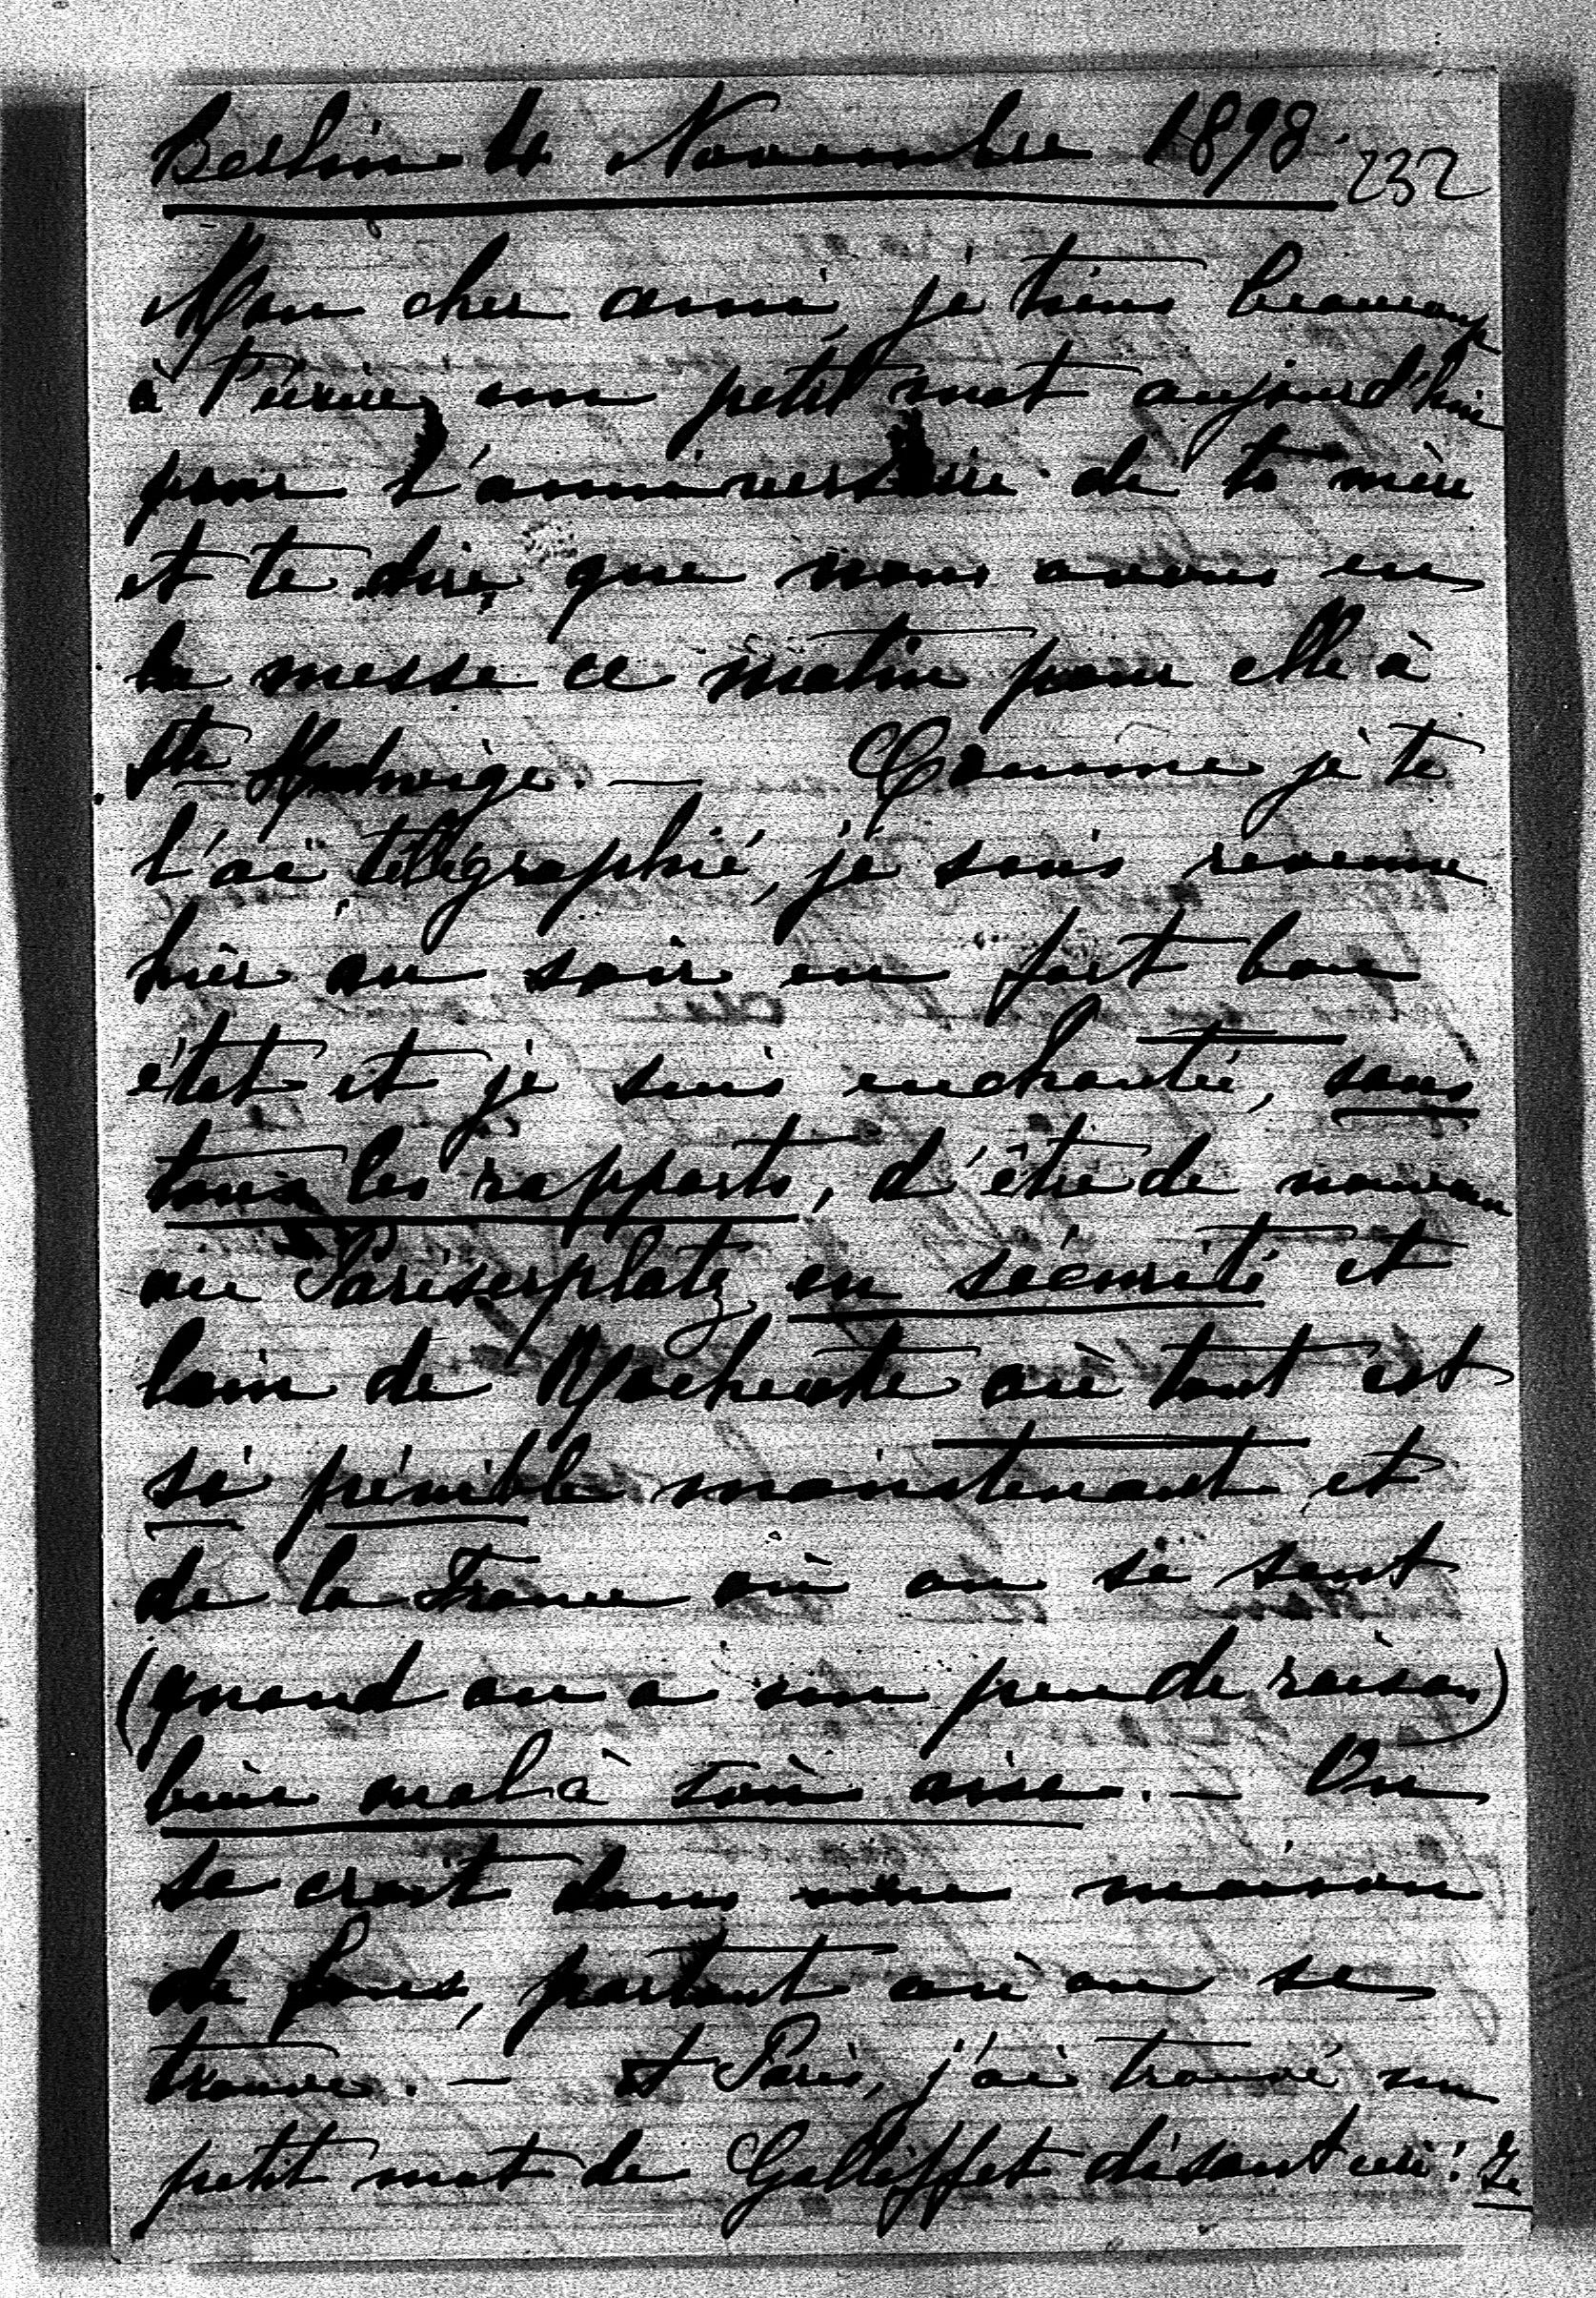 Berlin 4 Novembre 1898. 232
Mon cher ami, je tiens beaucoup
à t'écrire un petit mot aujourd'hui
pour l'anniversaire de ta mère
et te dire que nous avons eu
la messe ce matin pour elle à
Ste Hedwige. — Comme je te
l'ai télégraphié, je suis revenue
hier au soir en fort bon
état et je suis enchantée, sous
tous les rapports, d'être de nouveau
au Pariserplatz en sécurité et
loin de Rochecotte où tout est
si pénible maintenant et
de la France où on se sent
(quand on a un peu de raison)
bien mal à son aise. — On
se croit dans une maison
de fous, partout où on se
trouve. — A Paris, j'ai trouvé un
petit mot de Galliffet disant ceci: Je